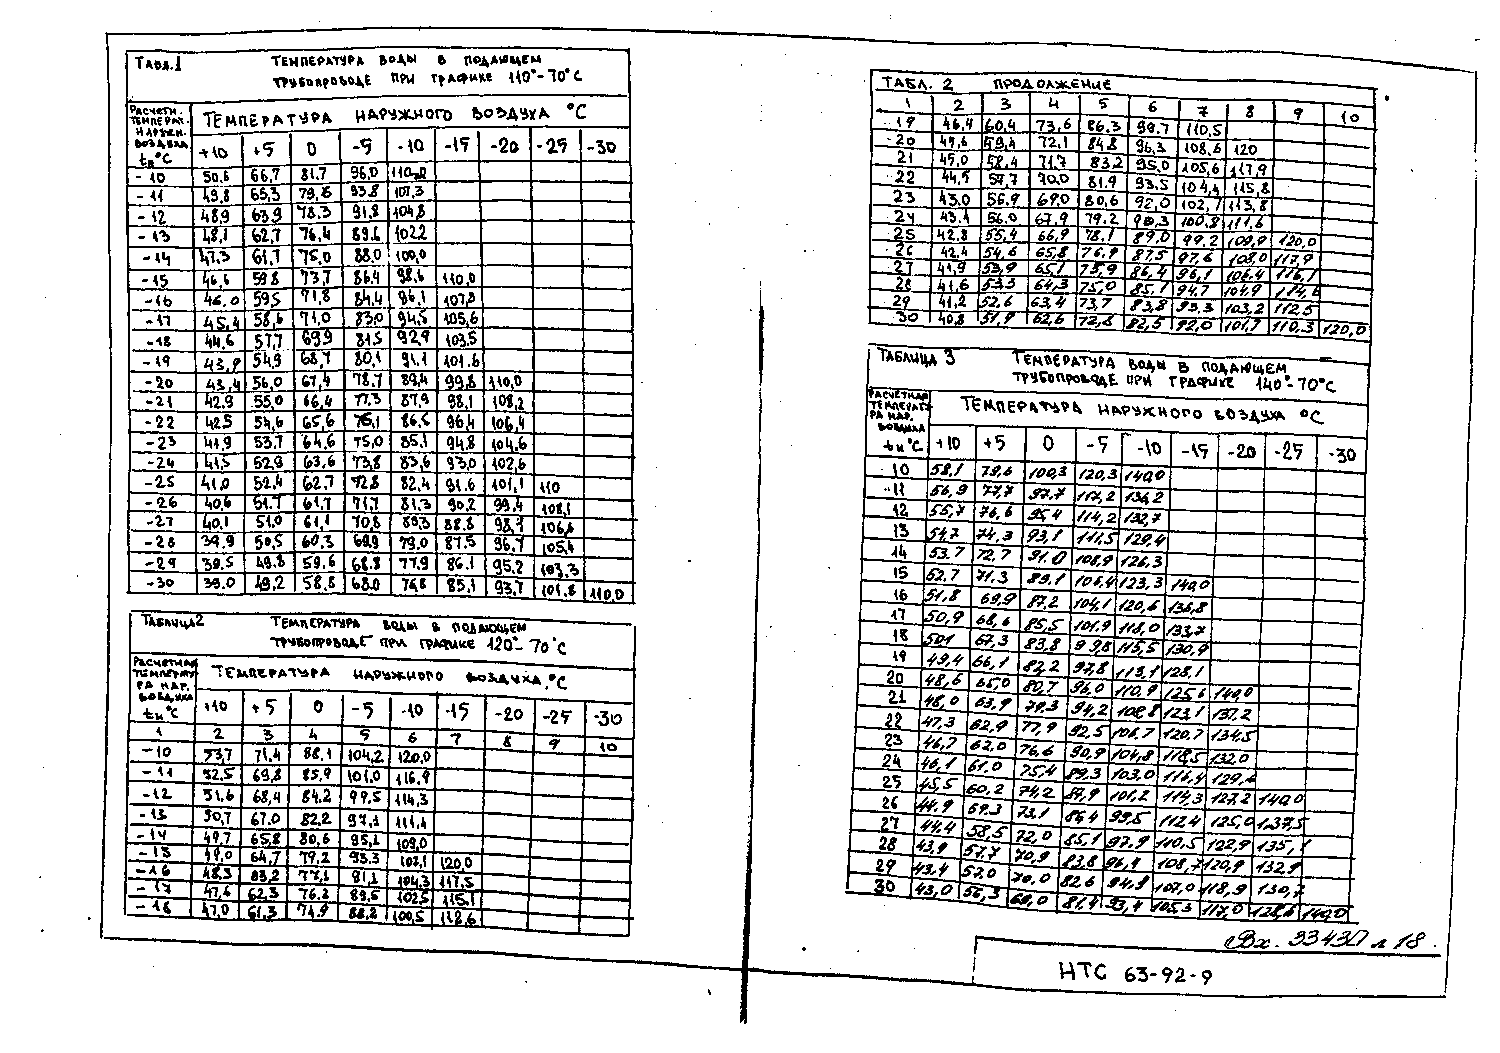 Табл.1 Температура воды в подающем
трубопроводе при графике 110°-70°С
Расчетн. температ. наружн. воздуха tн°С
Температура наружного воздуха °С
+10 +5 0 -5 -10 -15 -20 -25 -30
-10 50,6 66,7 81.7 96,0 110,0
-11 49,8 65,3 79,8 93.8 107,3
-12 48,9 63,9 78,3 91,8 104,8
-13 48,1 62,7 76,4 89,6 102,2
-14 47,3 61,7 75,0 88,0 100,0
-15 46,6 59,8 73,7 86,4 98,6 110,0
-16 46,0 59,5 71,8 84,4 96,1 107,8
-17 45,4 58,6 71,0 83,0 94,5 105,6
-18 44,6 57,7 69,9 81,5 92,9 103,5
-19 43,9 54,9 68,7 80,1 91,1 101,6
-20 43,4 56,0 67,4 78,7 89,4 99,8 110,0
-21 42,9 55,0 66,4 77,3 87,9 98,1 108,2
-22 42,5 54,6 65,6 76,1 86,5 96,4 106,4
-23 41,9 53,7 64,6 75,0 85,1 94,8 104,6
-24 41,5 52,9 63,6 73,8 83,6 93,0 102,6
-25 41,0 52,4 62,7 72,8 82,4 91,6 101,1 110
-26 40,6 51,7 61,7 71,7 81,3 90,2 99,4 108,1
-27 40,1 51,0 61,1 70,8 80,3 88,8 98,1 106,6
-28 39,9 50,5 60,3 69,9 79,0 87,5 96,7 105,1
-29 39,5 49,8 59,6 68,8 77,9 86,1 95,2 103,3
-30 39.0 49,2 58,8 68,0 76,8 85,1 93,7 101,8 110,0
Таблица 2 Температура воды в подающем
трубопроводе при графике 120°-70°С
Расчетная температура нар. воздуха tн°С
Температура наружного воздуха, °С
+10 +5 0 -5 -10 -15 -20 -25 -30
1 2 3 4 5 6 7 8 9 10
-10 53,7 71,4 88,1 104,2 120,0
-11 52,5 69,8 85,9 101,0 116,9
-12 51,6 68,4 84,2 99,5 114,3
-13 50,7 67.0 82,2 97,1 111,4
-14 49,7 65,8 80,6 95,1 109,0
-15 49,0 64,7 79,2 93,3 107,1 120,0
-16 48,3 63,2 77,1 81,1 104,3 117,5
-17 47,6 62,3 76,2 89,5 102,5 115,1
-18 47,0 61,3 74,9 88,2 100,5 112,6
Табл. 2 продолжение
1 2 3 4 5 6 7 8 9 10
-19 46,4 60,4 73,6 86,3 99,7 110,5
-20 59,4 72,1 84,8 96,3 108,6 120
21 45,0 58,4 71,7 83,2 95,0 105,6 117,9
22 44,5 57,7 70,0 81,9 93,5 104,4 115,8
23 43.0 56,9 69,0 80,6 92,0 102,7 113,8
24 43.4 56,0 67,9 79,2 90,3 100,8 111,6
25 42,8 55,4 66,9 78,1 89,0 99,2 109,9 120,0
26 42,4 54,6 65,8 76,9 87,5 97,6 108,0 117,9
27 41,9 53,9 65,1 75,9 86,4 96,1 106,4 116,1
28 41,6 53,3 64,3 75,0 85,1 94,7 104,9 114,6
29 41,2 52,6 63,4 73,7 83,8 93,3 103,2 112,5
30 40,8 51,9 62,6 72,8 82,5 92,0 101,7 110,3 120,0
Таблица 3 Температура воды в подающем
трубопроводе при графике 140°-70°С
Расчетная температура нар. воздуха tн°С
Температура наружного воздуха °С
+10 +5 0 -5 -10 -15 -20 -25 -30
10 58,1 79,6 100,3 120,3 140,0
11 56,9 77,7 97,7 117,2 136,2
12 55,7 76,6 95,4 114,2 132,7
13 54,7 74,3 93,1 111,5 129,4
14 53.7 72,7 91,0 108,9 126,3
15 52,7 71,3 89,1 106,4 123,3 140,0
16 51,8 69,9 87,2 104,1 120,6 136,8
17 50,9 68,6 85,5 101,9 118,0 133,7
18 50,1 67,3 83,8 99,8 115,5 130,9
19 49,4 66,1 82,2 97,8 113,1 128,1
20 48,6 65,0 80,7 96,0 110,9 125,6 140,0
21 48,0 63,9 79,3 94,2 108,8 123,1 137,2
22 47,3 62,9 77,9 92,5 106,7 120,7 134,5
23 46,7 62,0 76,6 90,9 104,8 118,5 132,0
24 46,1 61,0 75,4 89,3 103,0 116,4 129,6
25 45,5 60,2 74,2 87,9 101,2 114,3 127,2 140,0
26 44,9 59,3 73,1 86,4 99,5 112,4 125,0 137,5
27 44,4 58,5 72,0 85,1 97,9 110,5 122,9 135,1
28 43,9 57,7 70,9 83,8 96,4 108,7 120,9 132,9
29 43,4 57,0 70,0 82,6 94,9 107,0 118,9 130,7
30 43,0 56,3 69,0 81,4 93,4 105,3 117,0 128,6 140,0
Вх. 33430 л 18.
НТС 63-92-9